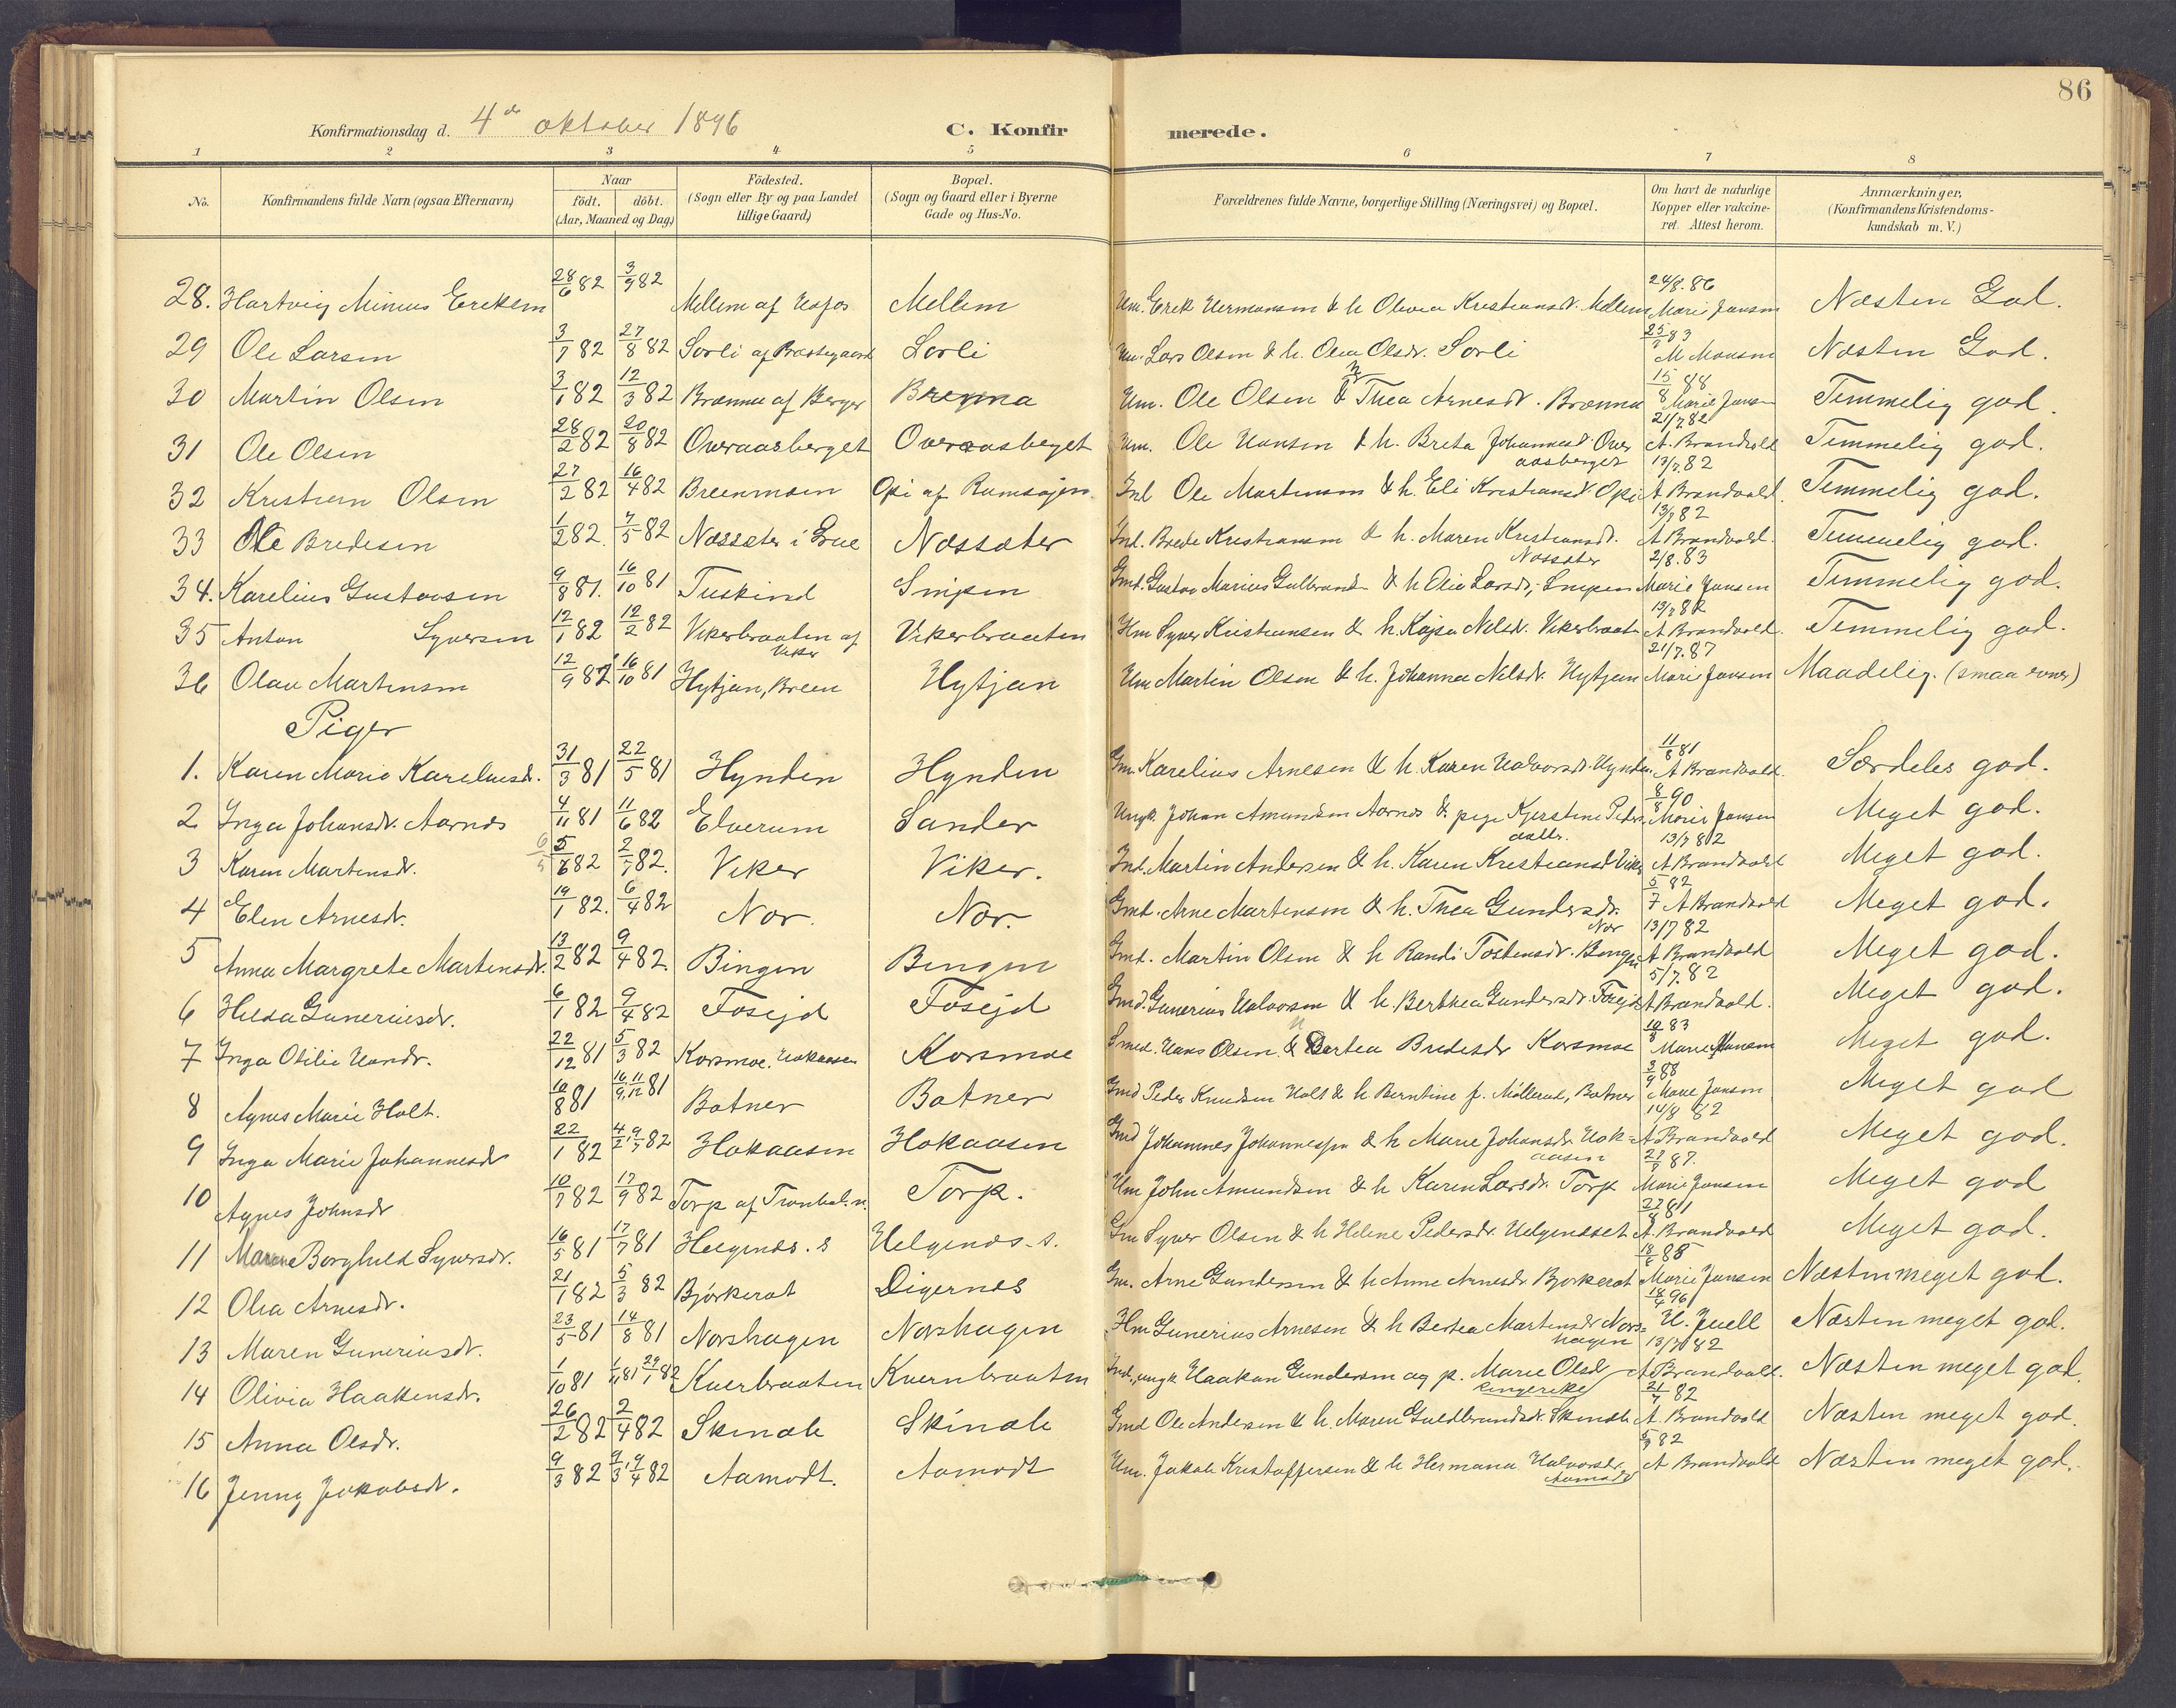 86
Konfirmationsdag d. 4de oktober 1896 C. Konfirmerede.
1 2 3 4 5 6 7 8
No. Konfirmandens fulde Navn (ogsaa Efternavn) Naar födt. döbt. (Aar, Maaned og Dag) Födested. (Sogn eller By og paa Landet tillige Gaard) Bopæl. (Sogn og Gaard eller i Byerne Gade og Hus-No. Forældrenes fulde Navne, borgerlige Stilling (Næringsvei) og Bopæl. Om havt de naturlige Kopper eller vakcineret. Attest herom. Anmærkninger, (Konfirmandens Kristendomskundskab m. V.)
28. Hartvig Minius Ereksen 28/6 82 3/9 82 Mellem af Mellem Um. Erek Hermansen & h Olivia Kristiansd. Mellem 24/8. 86 Marie Jansen Næsten God.
29 Ole Larsen 3/7 82 27/8 82 Sorli af Præstegaard Sorli Um. Lars Olsen & h. Olea Olsdr. Sorli 83 M Monsen Næsten God.
30 Martin Olsen 3/1 82 12/3 82 Brænna af Berger Brenna Um. Ole Olsen & Thea Arnesdr. Brænna 15/8 88 Marie Jansen Temmelig god.
31 Ole Olsen 28/2 82 20/8 82 Overaasberget Overaasberget Um. Ole Hansen & h. Breta Johannesd. Overaasberget 21/7 82 A. Brandvold Temmelig god.
32 Kristian Olsen 27/2 82 16/4 82 Breenmoen Opi af Ramsøjen Ind. Ole Martinsen & h. Eli Kristiansd Opi 13/7. 82 A Brandvold. Temmelig god.
33 Ole Bredesen 1/2 82. 7/5 82 Næssæter i Grue Næssæter Ind. Brede Kristiansen & h. Maren Kristiansd. Næssæter 13/7 82 A Brandvold. Temmelig god.
34. Karelius Gustavsen 9/8 81. 16/10 81 Tuskind Snipen Gmd. Gustav Marius Gulbrands. & h Olia Larsdr, Snipen 2/8. 83 Marie Jansen Temmelig god.
35 Anton Syversen 12/1 82 12/2 82 Vikerbraaten af Viker Vikerbraaten Hm Syver Kristiansen & h. Kajsa Nilsdr. Vikerbraat. 13/7 82 A Brandvold. Temmelig god.
36 Olau Martinsen 12/9 81 16/10 81 Hytjan, Breen Hytjan Um Martin Olsen & h. Johanna Nilsdr. Hytjan 21/7. 87 Marie Jansen Maadelig. (smaa evner)
Piger
1. Karen Marie Kareliusdr. 31/3 81 22/5 81 Hynden Hynden Gm Karelius Arnesen & h. Karen Halvorsdr. Hynden 11/8 81 A Brandvold. Særdeles god.
2 Inga Johansdr. Aarnes 4/11 81 11/6 82 Elverum Sander Ungk. Johan Amundsen Aarnes & pige Kjerstine Pedersdatter. 8/8 90 Marie Jansen Meget god.
3 Karen Martinsdr. 6/5 5/6 82 2/7 82. Viker Viker. Ind. Martin Andersen & h. Karen Kristiansd Viker 13/7 82 A Brandvold Meget god.
4 Elen Arnesdr. 19/1 82. 6/4 82 Nor. Nor. Gmd. Arne Martinsen & h. Thea Gundersdr. Nor 5/7 82 A Brandvold Meget god.
5 Anna Margrete Martinsdr. 13/2 82 9/4 82. Bingen Bingen Gmd. Martin Olsen & h Randi Tostensdr. Bingen 13/7 82 A Brandvold Meget god.
6 Hilda Guneriusdr. 6/1 82 9/4 82 Fosejd Fosejd Gmd. Gunerius Halvorsen & h. Berthea Gundersdr. Fosejd 5/7. 82 A Brandvold. Meget god.
7 Inga Otilie Hansdr. 22/12 81 5/3 82 Korsmoe. Hokaasen Korsmoe Smed. Hans Olsen & h Bertea Bredesdr Korsmoe 83 Marie Jansen Meget god.
8 Agnes Marie Holt. 10/8 81 16/9, 11/12 81 Botner Botner Gmd Peder Knudsen Holt & h Berntine f. Møllerud, Botner 88 Marie Jansen Meget god
9 Inga Marie Johannesdr 22/1 82 4/2, 9/7 82 Hokaasen Hokaasen Gmd Johannes Johannessen & h Marie Johansdr. Hokaasen 14/8 82 A Brandvold Meget god.
10 Agnes Johnsdr 10/7 82 17/9 82 Torp af Tronbøl. n. Torp. Um John Amundsen & h Karen Larsdr. Torp 87. Marie Jansen Meget god
11 Maren Borghild Syversdr. 16/5 81 17/7 81 Helgenæs. s Helgenæs. s. Gm Syver Olsen & h Helene Pedersdr. Helgenæset 81 A Brandvold Meget god.
12 Olea Arnesdr. 21/1 82 5/3 82 Bjørkerot Digernæs Gm. Arne Gundersen & h Anne Arnesdr Bjørkerot 85 Marie Jansen Næsten meget god.
13 Maren Guneriusdr. 23/5 81 14/8 81 Norshagen Norshagen Hm Gunerius Arnesen & h Bertea Martinsdr Norshagen 18/4 96 H. Juell Næsten meget god.
14 Olivia Haakensdr. 1/10 81 29/1 82 Kvernbraaten Kvernbraaten Ind., ungk Haakon Gundersen og p. Marie Olsdr Ringerike 13/7 82 A Brandvold. Næsten meget god.
15 Anna Olsdr. 26/2 82 2/4 82 Skinale Skinale Gmd Ole Andersen & h. Maren Guldbrandsdr. Skinale 21/7 82 A. Brandvold Næsten meget god.
16 Jenny Jakobsdr. 9/3 82 9/4 82 Aamodt. Aamodt Um. Jakob Kristoffersen & h Hermana Halvorsdr. Aamodt 82 A Brandvold Næsten meget god.